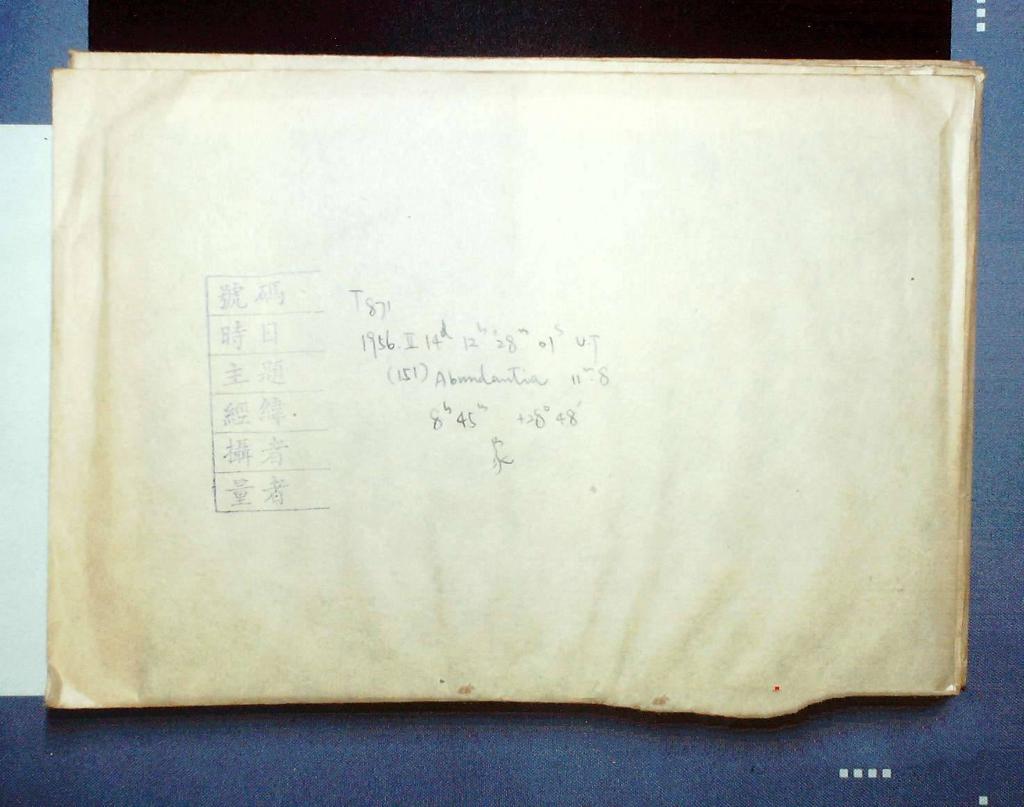 號碼 T871
時日 1956. II 14d 12h 28m 01s U.T
主題 (151) Abundantia 11m.8
經緯 8h 45m +28° 48'
攝者
量者